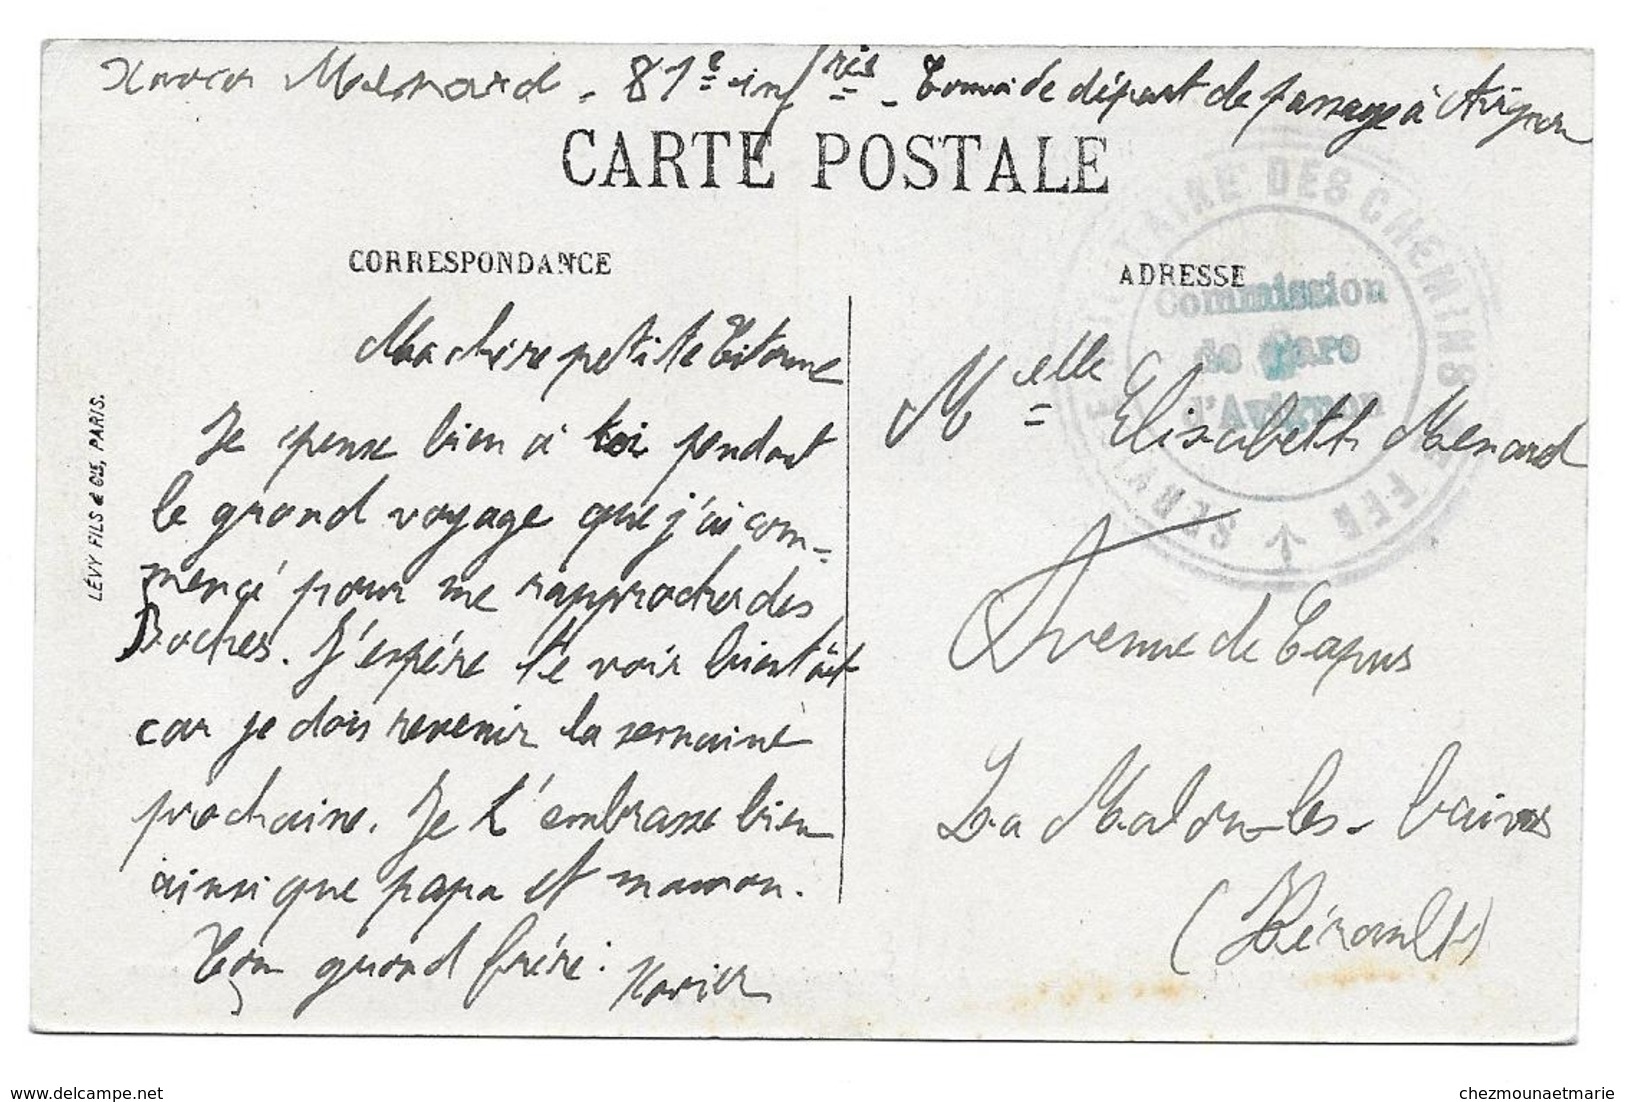 Xavier Mesnard - 81e infrie - Convoi de départ de passage à Avignon
CARTE POSTALE
CORRESPONDANCE
ADRESSE
SERVICE MILITAIRE DES CHEMINS DE FER
Commission
de Gare
d'Avignon
Ma chère petite
Je pense bien à toi pendant
le grand voyage que j'ai com-
mencé pour me rapprocher des
Boches. J'espére te voir bientôt
car je dois revenir la semaine
prochaine. Je t'embrasse bien
ainsi que papa et maman.
Ton grand frére. Xavier
Melle Elisabeth Mesnard
Avenue de Capus
La Malou-les-bains
(Hérault)
LÉVY FILS & CIE, PARIS.
© Delcampe.net
chezmounaetmarie